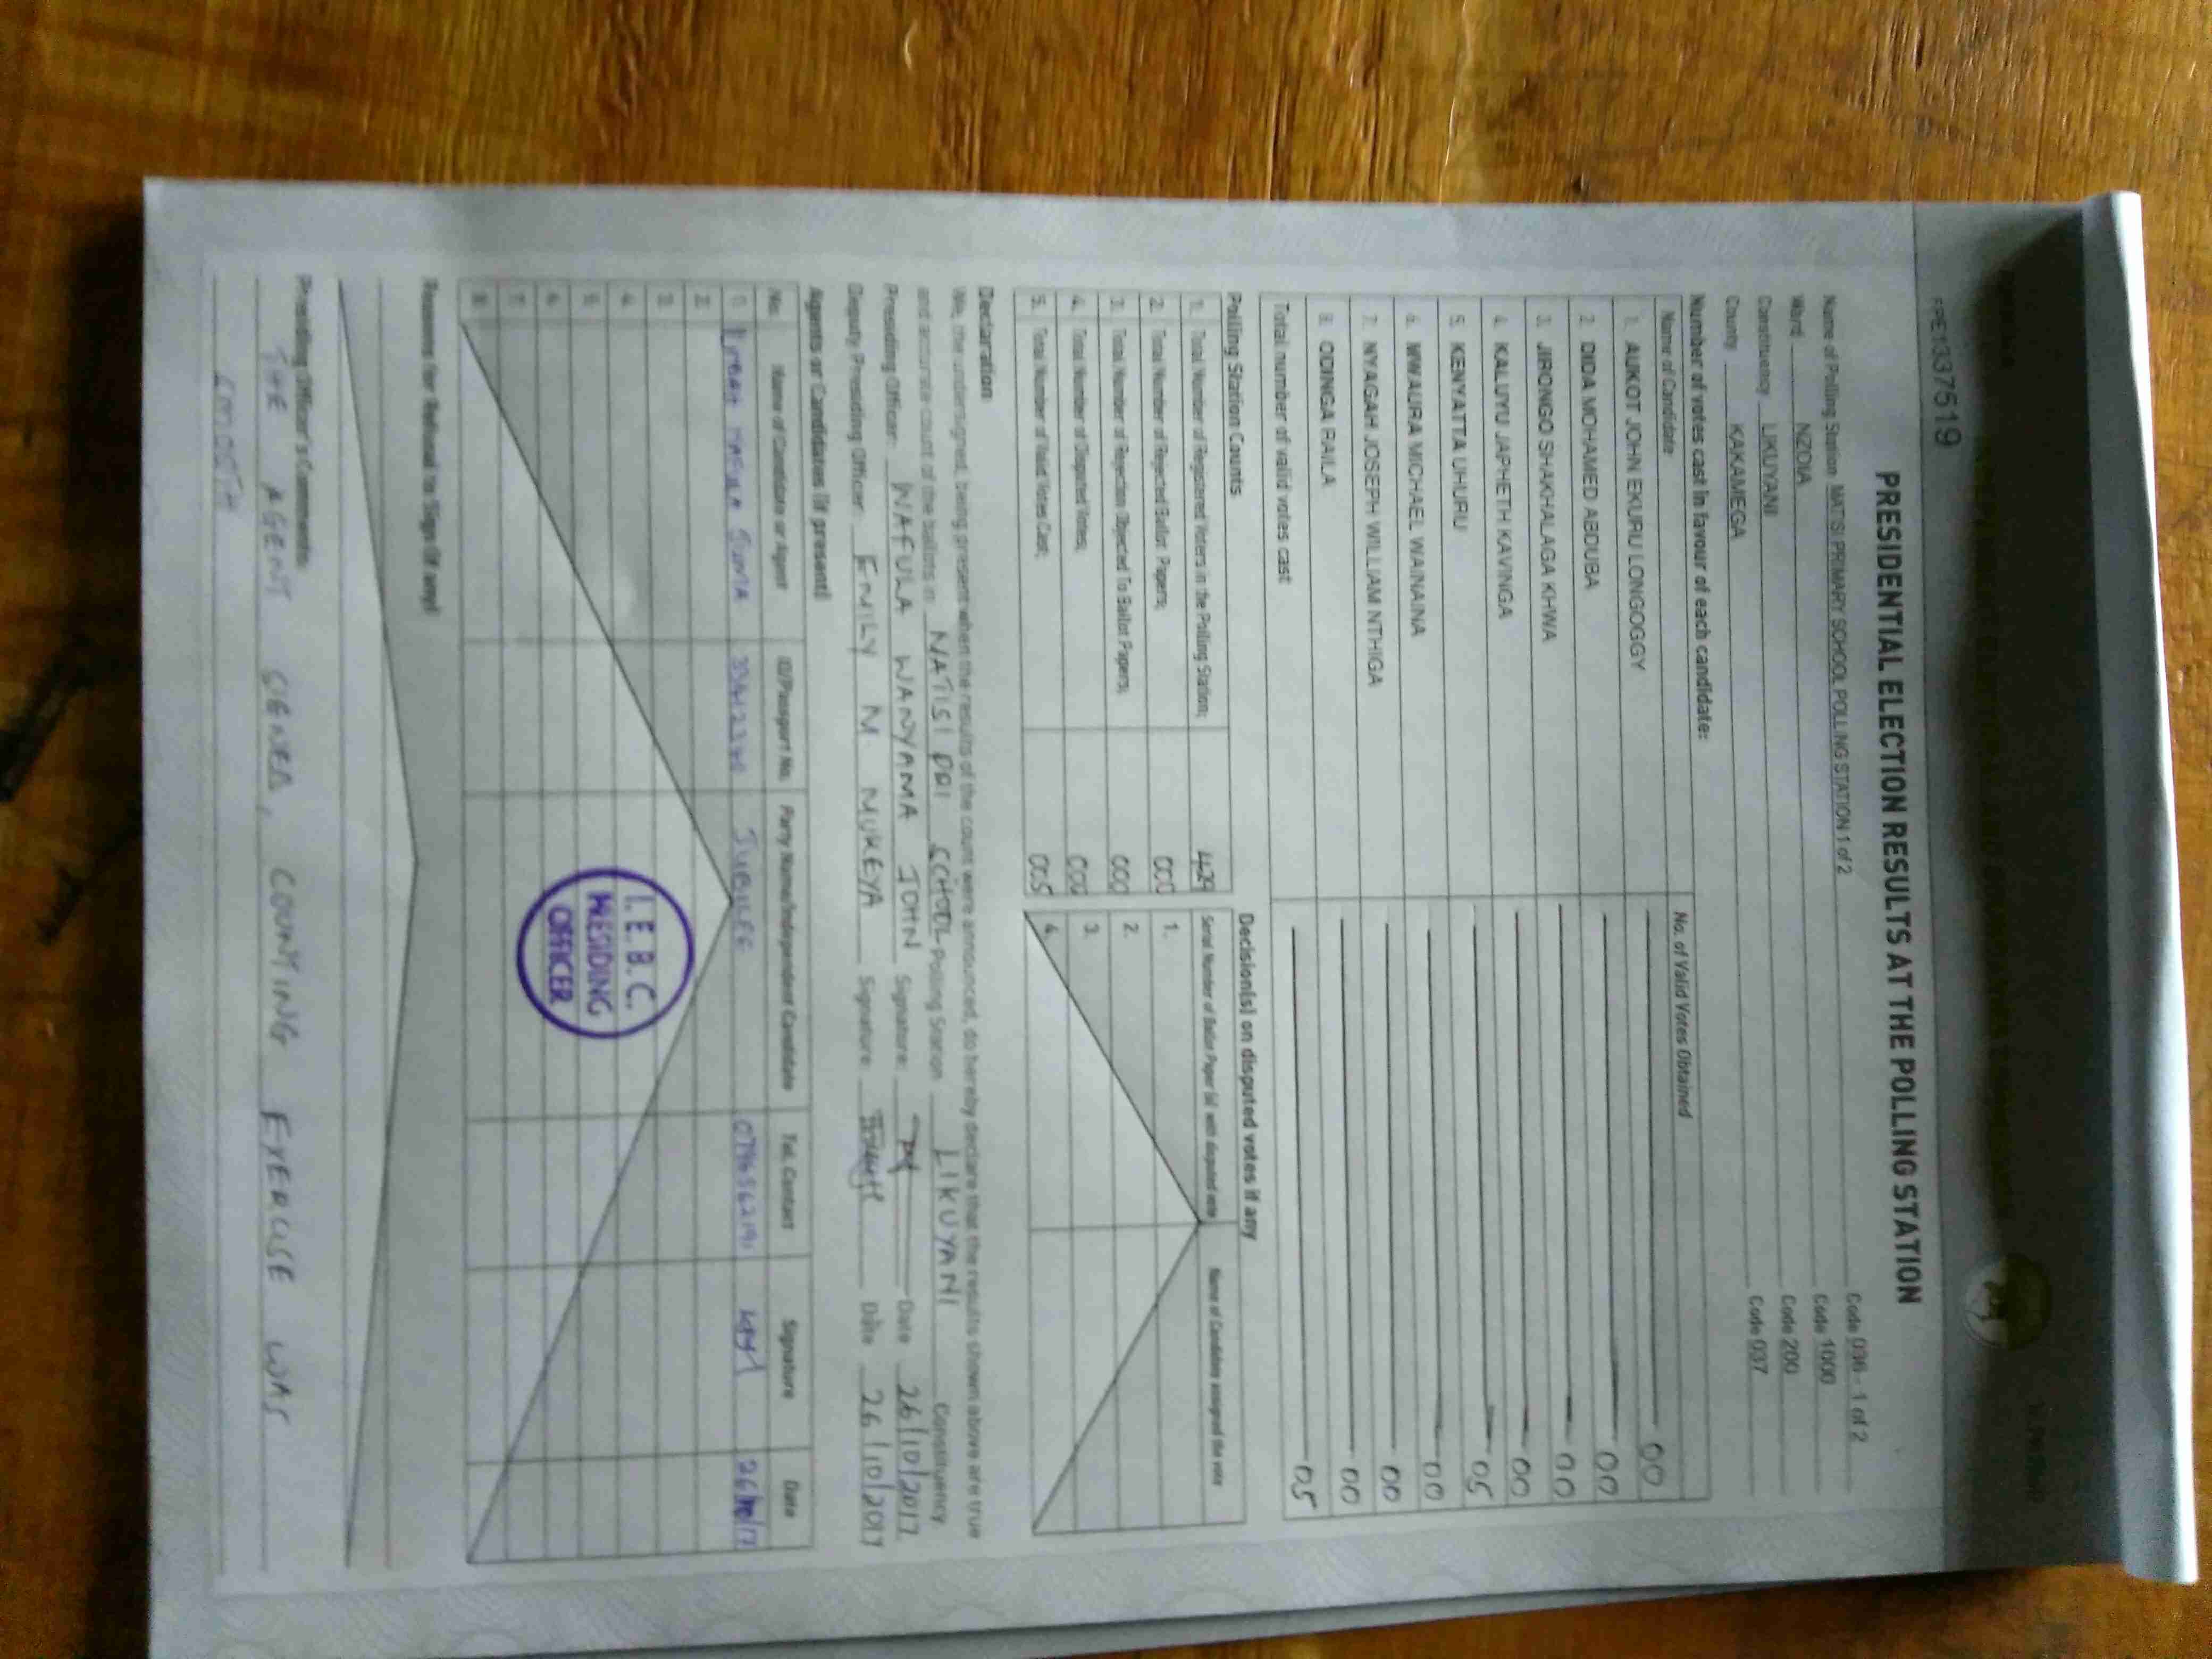 FPE1337519
PRESIDENTIAL ELECTION RESULTS AT THE POLLING STATION
Name of Polling Station MATISI PRIMARY SCHOOL POLLING STATION 1 of 2 Code 036 - 1 of 2
Ward NZOIA Code 1000
Constituency LIKUYANI Code 200
County KAKAMEGA Code 037
Number of votes cast in favour of each candidate:
Name of Candidate No. of Valid Votes Obtained
1. AUKOT JOHN EKURU LONGOGGY 00
2. DIDA MOHAMED ABDUBA 00
3. JIRONGO SHAKHALAGA KHWA 00
4. KALUYU JAPHETH KAVINGA 00
5. KENYATTA UHURU 05
6. MWAURA MICHAEL WAINAINA 00
7. NYAGAH JOSEPH WILLIAM NTHIGA 00
8. ODINGA RAILA 00
Total number of valid votes cast 05
Polling Station Counts
1. Total Number of Registered Voters in the Polling Station; 429
2. Total Number of Rejected Ballot Papers; 000
3. Total Number of Rejection Objected To Ballot Papers; 000
4. Total Number of Disputed Votes; 000
5. Total Number of Valid Votes Cast; 005
Decision(s) on disputed votes if any
Serial Number of Ballot Paper (s) with disputed vote Name of Candidate assigned the vote
1.
2.
3.
4.
Declaration
We, the undersigned, being present when the results of the count were announced, do hereby declare that the results shown above are true
and accurate count of the ballots in MATISI PRI SCHOOL Polling Station LIKUYANI Constituency
Presiding Officer: WAFULA WANYAMA JOHN Signature: Date 26/10/2017
Deputy Presiding Officer: EMILY M. MUKEYA Signature: Date 26/10/2017
Agents or Candidates (if present)
No. Name of Candidate or Agent ID/Passport No. Party Name/Independent Candidate Tel. Contact Signature Date
1. JUMA JUBILEE 26/10/17
2.
3.
4.
5.
6.
7.
8.
I.E.B.C.
PRESIDING
OFFICER
Reasons for Refusal to Sign (if any)
Presiding Officer's Comments:
THE AGENT SIGNED, COUNTING EXERCISE WAS
SMOOTH